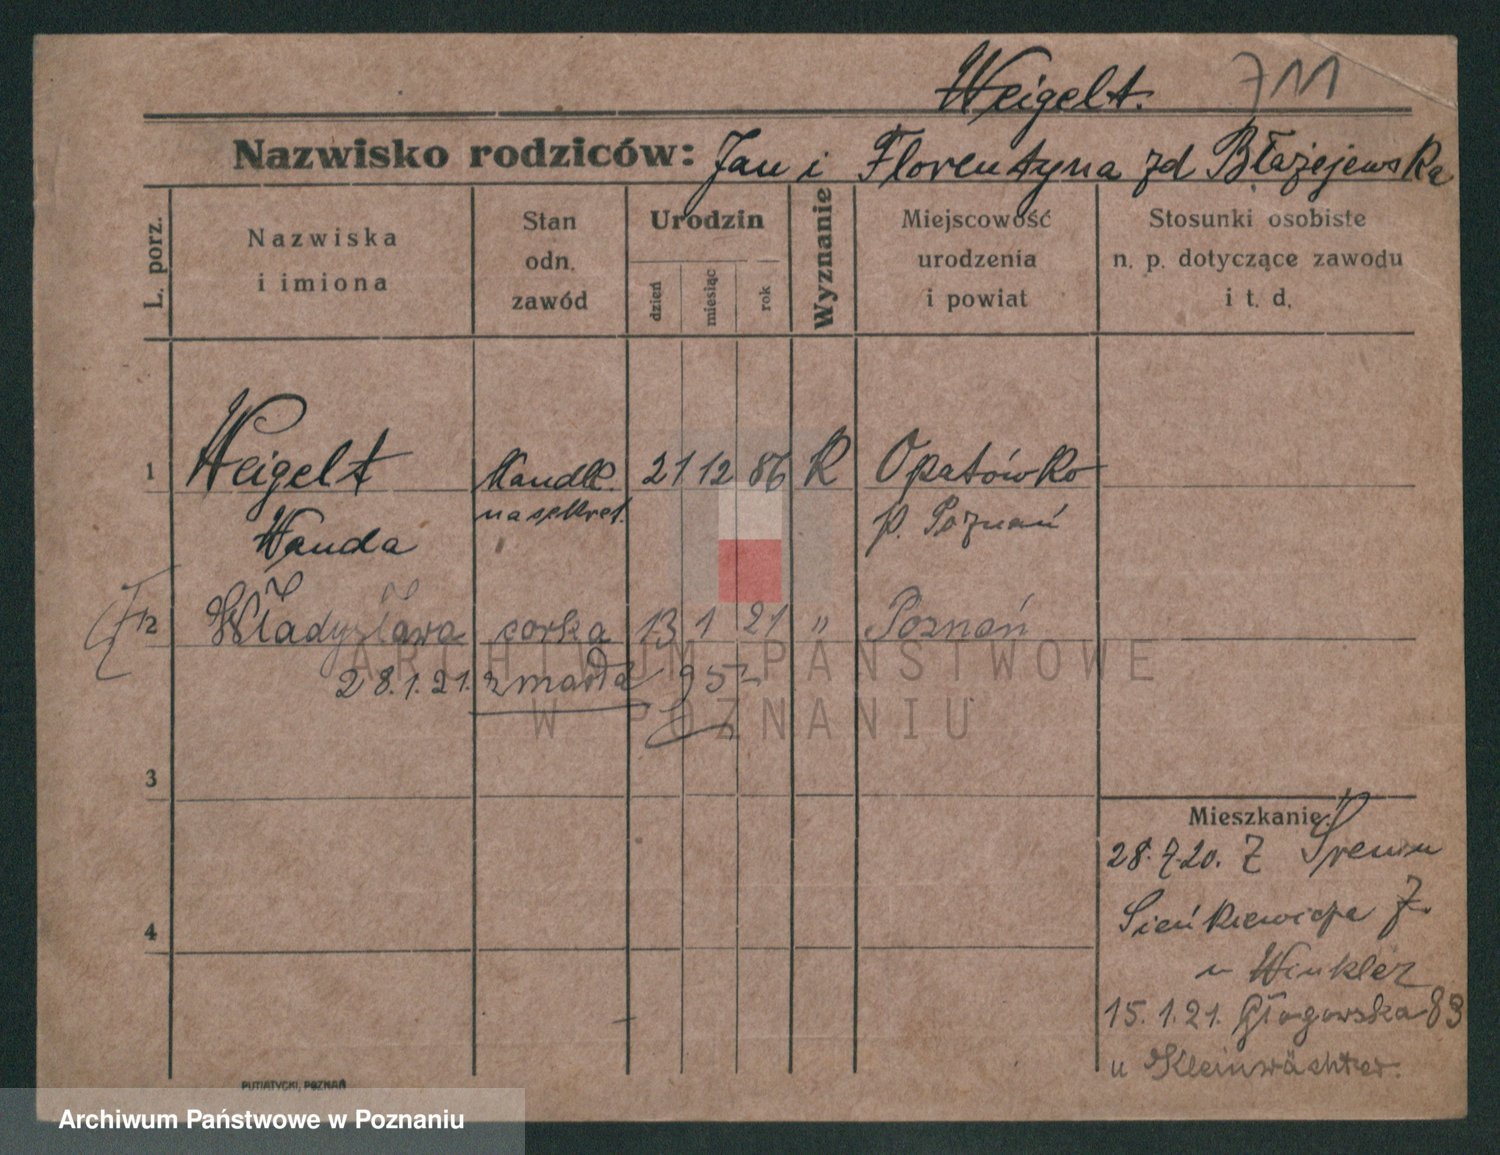 Weigelt. 711
Nazwisko rodziców: Jan i Florentyna zd Błażejewska
L. porz.
Nazwiska
i imiona
Stan
odn.
zawód
Urodzin
dzień
miesiąc
rok
Wyznanie
Miejscowość
urodzenia
i powiat
Stosunki osobiste
n. p. dotyczące zawodu
i t. d.
1 Weigelt Handl. 21 12 86 K Opatówko
p. Poznań
Wanda
2 Władysława corka 13 1 21 " Poznań
28.1.21. zmarła 95
3
4
Mieszkanie:
28.7.20. Z Śremu
Sieńkiewicza 7.
u Winkler
15.1.21. Głogowska 83
u Kleinwächter.
PUTIATYCKI, POZNAŃ
ARCHIWUM PAŃSTWOWE
W POZNANIU
Archiwum Państwowe w Poznaniu